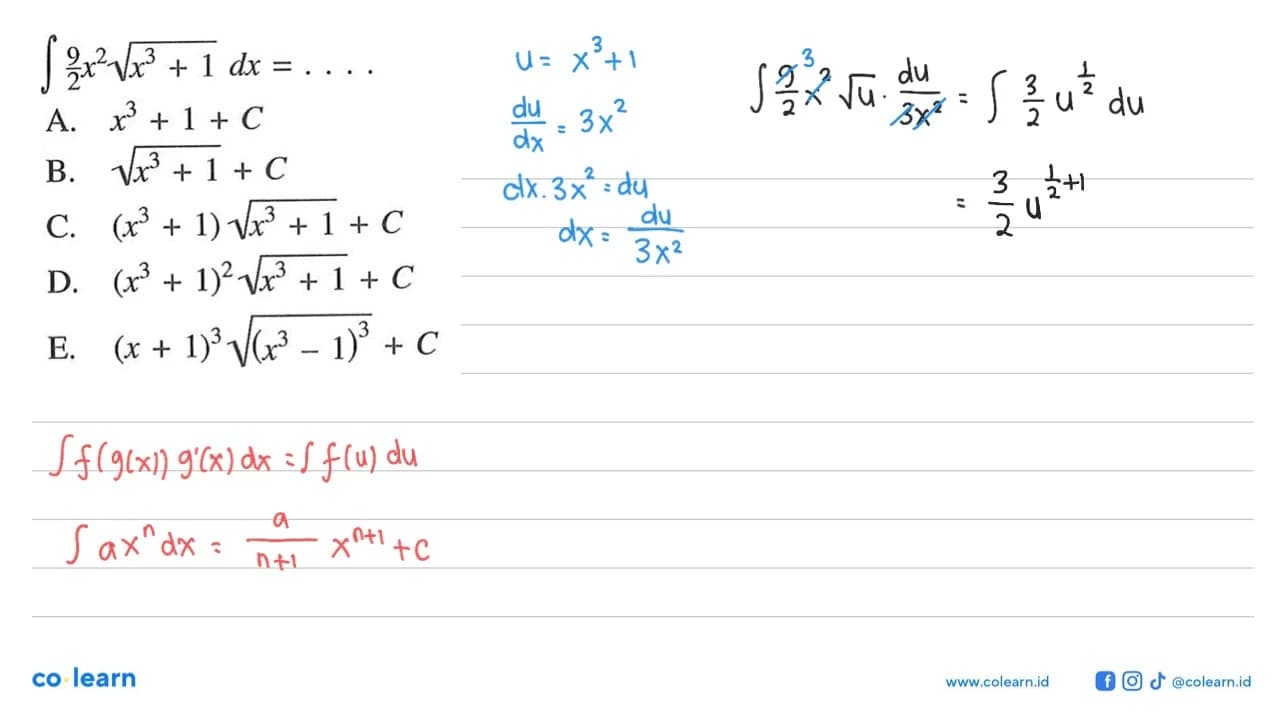 ∫ 9/2 x² √(x³ + 1) dx = . . . .
A. x³ + 1 + C
B. √(x³ + 1) + C
C. (x³ + 1) √(x³ + 1) + C
D. (x³ + 1)² √(x³ + 1) + C
E. (x + 1)³ √((x³ – 1)³) + C
u = x³ + 1
du/dx = 3x²
dx . 3x² = du
dx = du/3x²
∫ 9/2 ³ x² √u . du/3x² = ∫ 3/2 u^(1/2) du
= 3/2 u^(1/2+1)
∫ f(g(x)) g'(x) dx = ∫ f(u) du
∫ ax^n dx = a/(n+1) x^(n+1) + c
co learn
www.colearn.id
@colearn.id